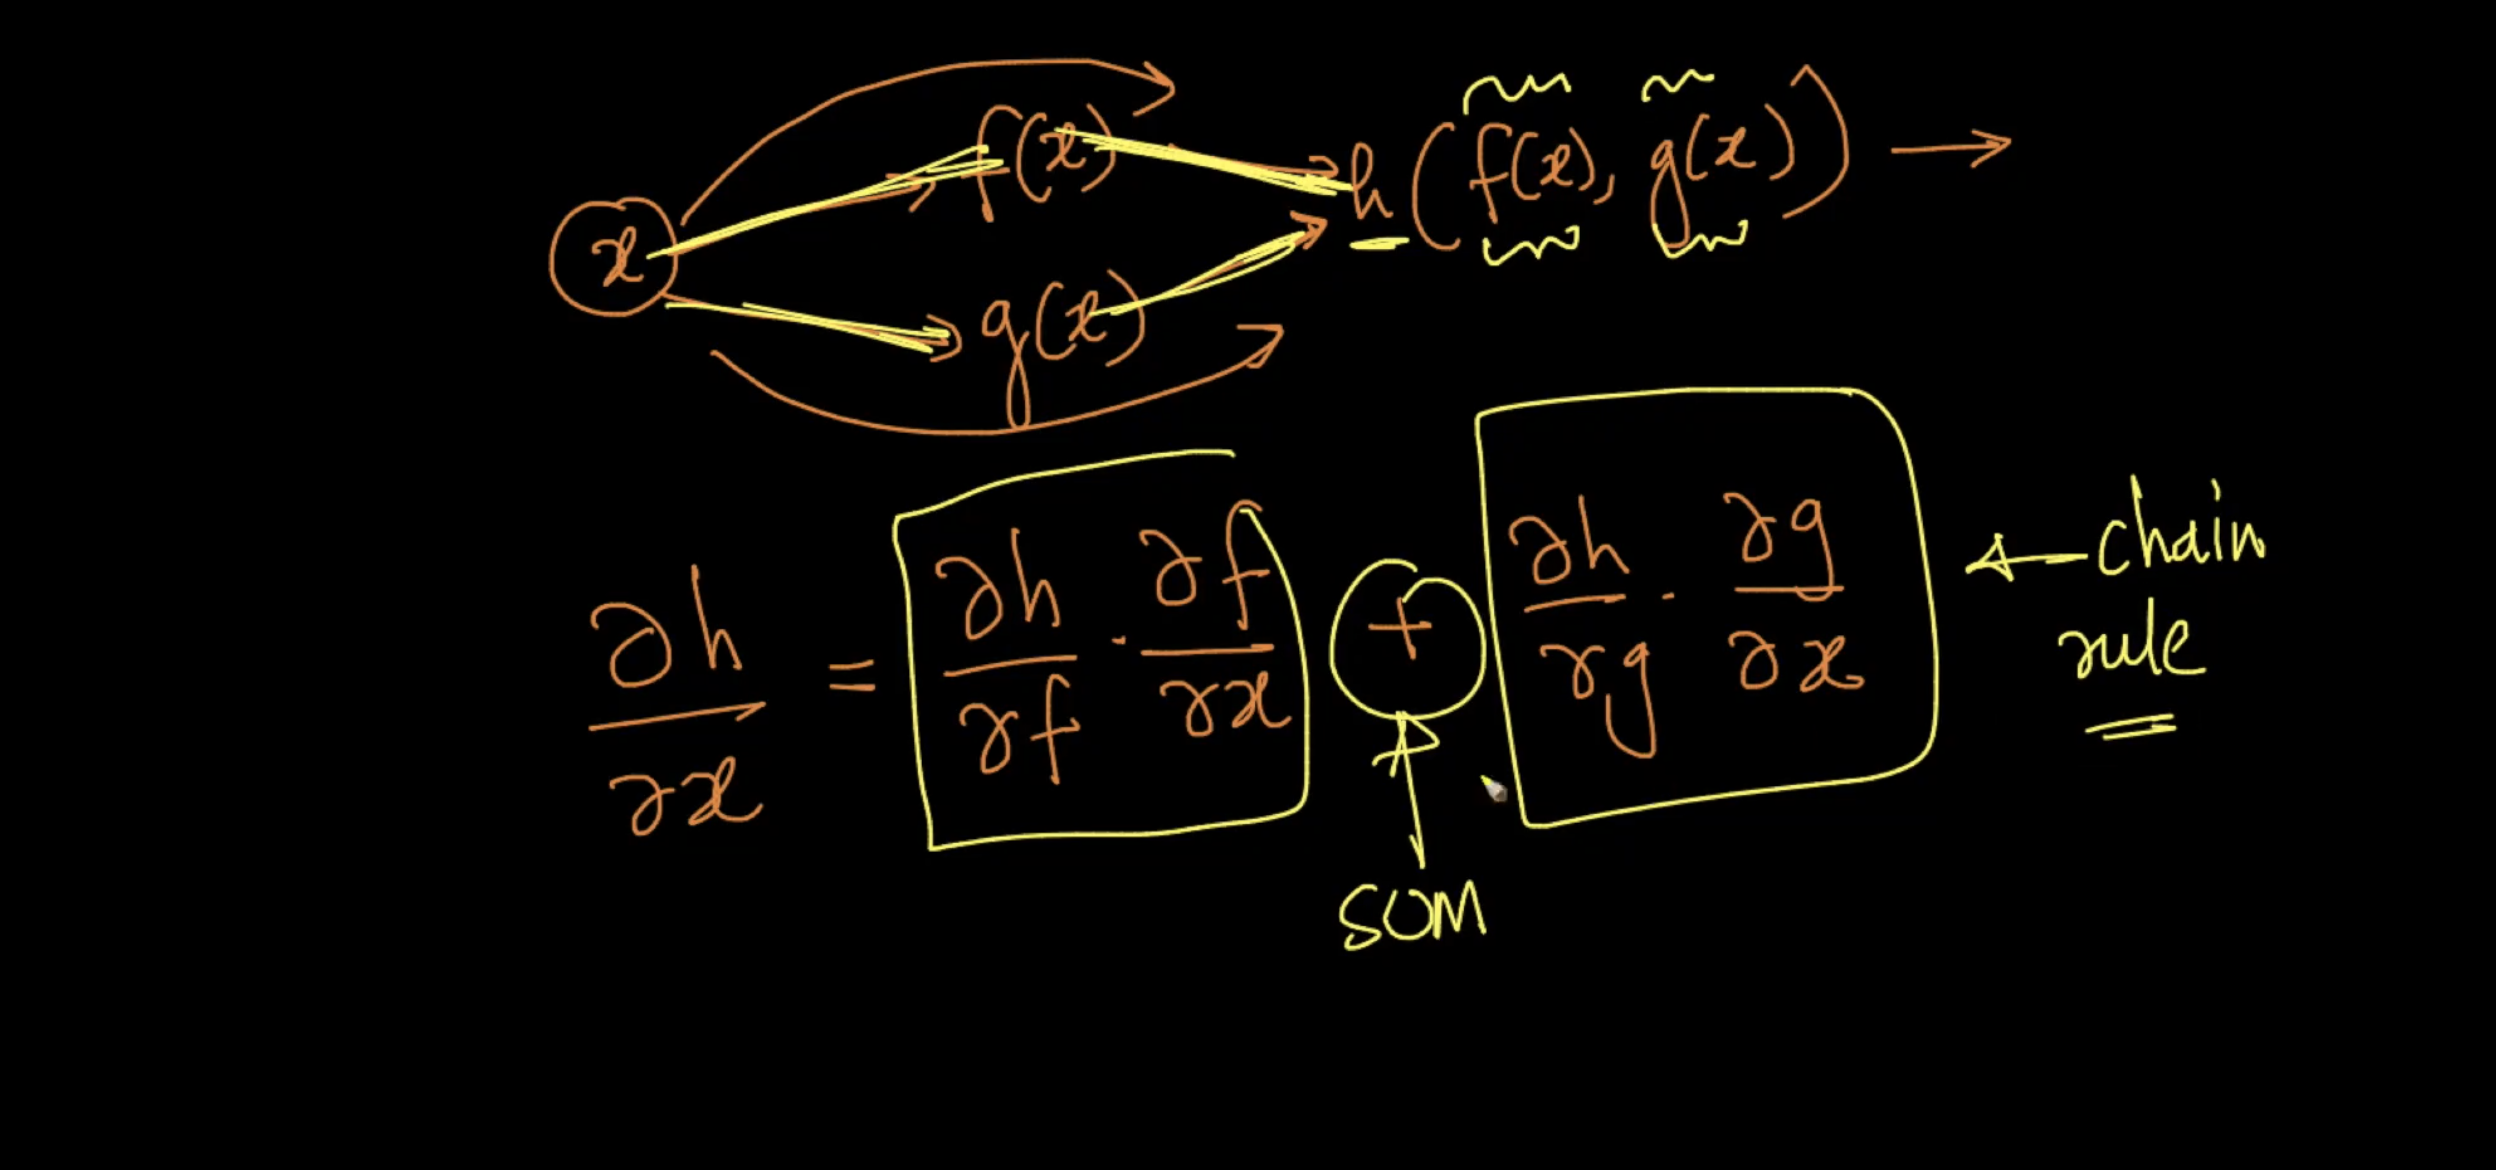 x → f(x) → h(f(x), g(x)) →
g(x)
∂h/∂x = ∂h/∂f · ∂f/∂x + ∂h/∂g · ∂g/∂x ← chain rule
SUM